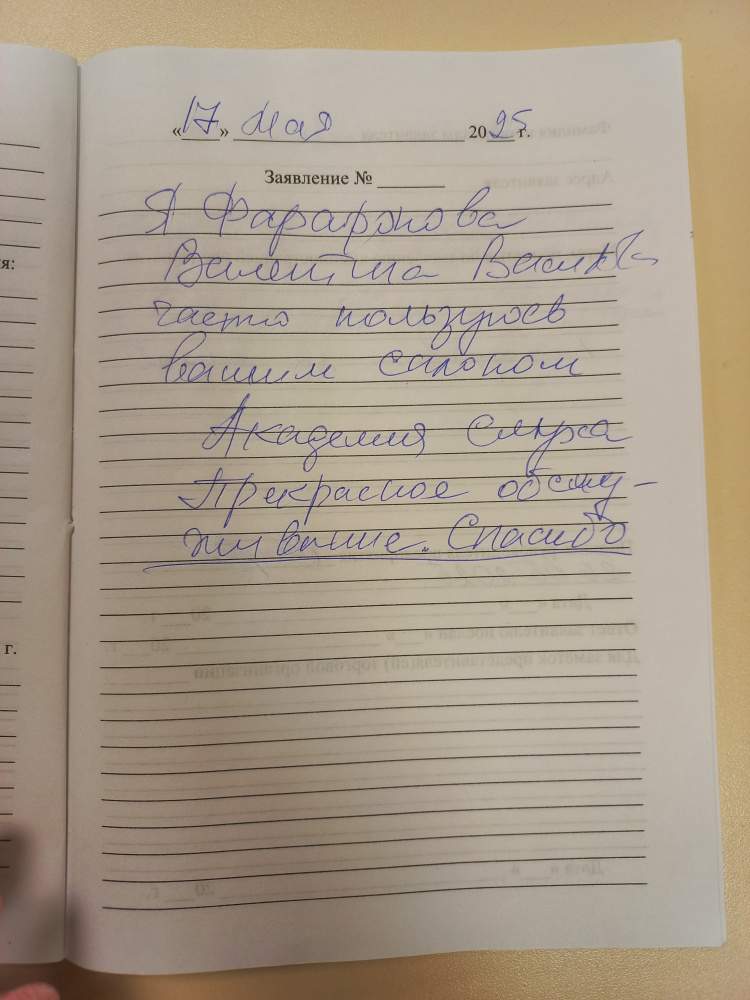 «17» Мая 2025 г.
Заявление №
Я Фарафонова
Валентина
часто пользуюсь
вашим салоном
Академия слуха
Прекрасное обслу-
живание. Спасибо
я:
г.